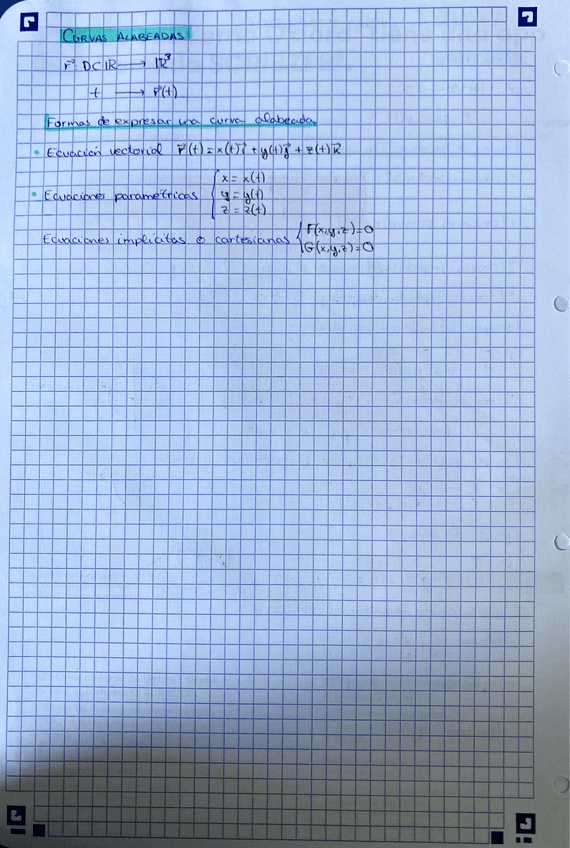 CURVAS ALABEADAS
r⃗: D⊂ℝ ⟶ ℝ³
t ⟶ r⃗(t)
Formas de expresar una curva alabeada
• Ecuación vectorial r⃗(t) = x(t)i⃗ + y(t)j⃗ + z(t)k⃗
• Ecuaciones paramétricas { x = x(t)
y = y(t)
z = z(t)
Ecuaciones implícitas o cartesianas { F(x,y,z)=0
G(x,y,z)=0